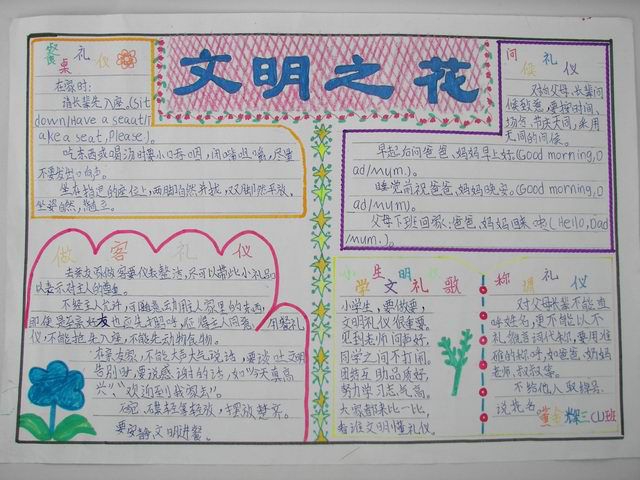 文明之花
餐桌礼仪
在家时:
请长辈先入座。(Sit
down/Have a seat/T
ake a seat, Please)。
吃东西或喝汤时要小口吞咽,闭嘴咀嚼,尽量
不要发出响声。
坐在档边的座位上,两脚自然并拢,双脚自然平放,
坐姿自然,端正。
问候礼仪
对于父母、长辈问
候致意,要按时间、
场合、节庆不同,采用
不同的问候。
早起后问爸爸、妈妈早上好。(Good morning, D
ad/Mum.)。
睡觉前祝爸爸、妈妈晚安。(Good morning, D
ad/Mum.)。
父母下班回家:爸爸、妈妈回来啦(Hello, Dad
/Mum.)。
做客礼仪
去亲友家做客要仪表整洁,尽可以带些小礼品
以表示对主人的尊重。
不经主人允许,可随意去翻别人家里的东西,
即使是至亲好友也应先打招呼,征得主人同意,
仪,不能抢先入座,不能先动食物。
在亲友家,不能大声大气说话,要谈吐文明
告别时,要说感谢的话,如“今天真高
兴”、“欢迎到我家去”。
碗、碟轻拿轻放,摆放整齐。
要安静、文明进餐
小学生文明礼仪歌
小学生,要做要,
文明礼仪很重要,
见到老师问声好,
同学之间不打闹。
团结互助品质好,
努力学习志气高。
大家都来比一比,
看谁文明懂礼仪。
称谓礼仪
对父母长辈不能直
呼姓名,更不能以不
礼貌言词代称,要用准
确的称呼,如爸爸、奶奶
老师、叔叔等。
不给他人取绰号、
说花名
三(1)班